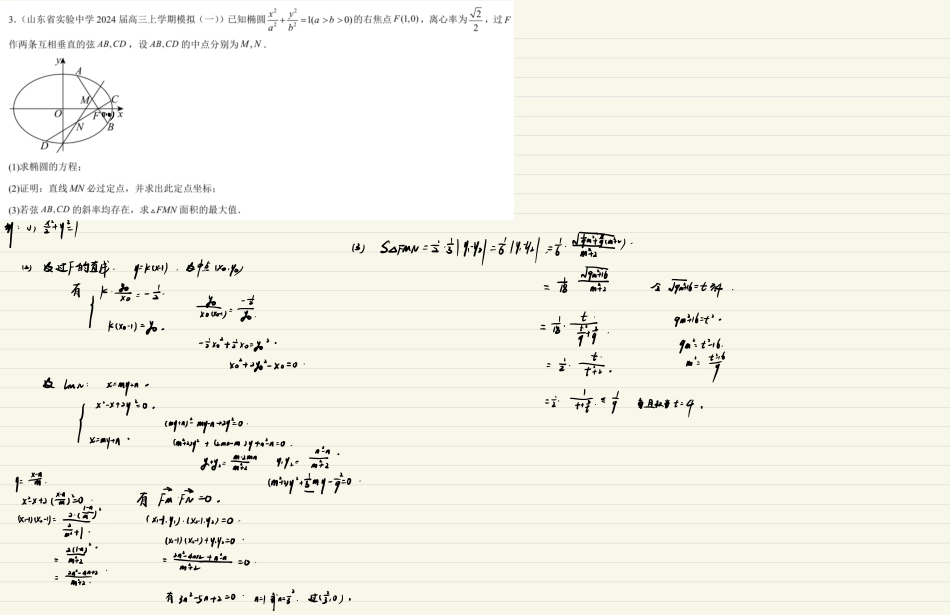 3.（山东省实验中学 2024 届高三上学期模拟（一））已知椭圆 x²/a² + y²/b² =1(a>b>0) 的右焦点 F(1,0)，离心率为 √2/2，过 F
作两条互相垂直的弦 AB,CD，设 AB,CD 的中点分别为 M,N．
y A
M C
O F (1,0) x
N B
D
(1)求椭圆的方程；
(2)证明：直线 MN 必过定点，并求出此定点坐标；
(3)若弦 AB,CD 的斜率均存在，求△FMN 面积的最大值．
(1) x²/2 + y² = 1
(2) 设过F的直线 y=k(x-1) . 设中点 (x₀,y₀)
有 { k · y₀/x₀ = -1/2 .
k(x₀-1) = y₀ .
y₀/(x₀(x₀-1)) = -1/2 / y₀ .
-1/2 x₀² + 1/2 x₀ = y₀² .
x₀² + 2y₀² - x₀ = 0
设 lMN: x=my+n .
{ x²-x+2y²=0 .
x=my+n .
(my+n)² - my-n+2y²=0 .
(m²+2)y² + (2mn-m)y + n²-n=0 .
y₁+y₂ = (m-2mn)/(m²+2) y₁y₂ = (n²-n)/(m²+2) .
(m²+2)y² + 1/3 my - 2/9 = 0 .
y = (x-n)/m .
x²-x+2((x-n)/m)² = 0 .
(x₁-1)(x₂-1) = 2·((1-n)/m)² / (2/m²+1) .
= 2(1-n)²/(m²+2) .
= (2n²-4n+2)/(m²+2) .
有 FM · FN = 0 .
(x₁-1,y₁)·(x₂-1,y₂)=0 .
(x₁-1)(x₂-1)+y₁y₂=0 .
= (2n²-4n+2+n²-n)/(m²+2) = 0 .
有 3n²-5n+2=0 . n=1 或 n=2/3 . 过(2/3,0) .
(3) S△FMN = 1/2 · 1/3 |y₁-y₂| = 1/6 |y₁-y₂| = 1/6 · √(1/9 m²+8/9(m²+2))/(m²+2) .
= 1/18 · √(9m²+16)/(m²+2) 令 √(9m²+16) = t ≥ 4 .
= 1/18 · t/(t²/9+2/9) . 9m²+16=t² .
9m²=t²-16 .
= 1/2 · t/(t²+2) . m² = (t²-16)/9
= 1/2 · 1/(t+2/t) ≤ 1/9 当且仅当 t=4 .